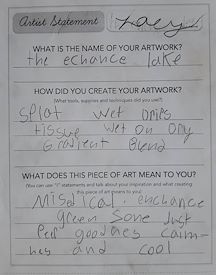 Artist Statement
WHAT IS THE NAME OF YOUR ARTWORK?
the echance lake
HOW DID YOU CREATE YOUR ARTWORK?
(What tools, supplies and techniques did you use?)
Splat wet Drips
tissue wet on Dry
Gradient Blend
WHAT DOES THIS PIECE OF ART MEAN TO YOU?
(You can use "I" statements and talk about your inspiration and what creating
this piece of art means to you)
Misdical, enchance
green Sone Just
Per goodnes calm-
nes and cool